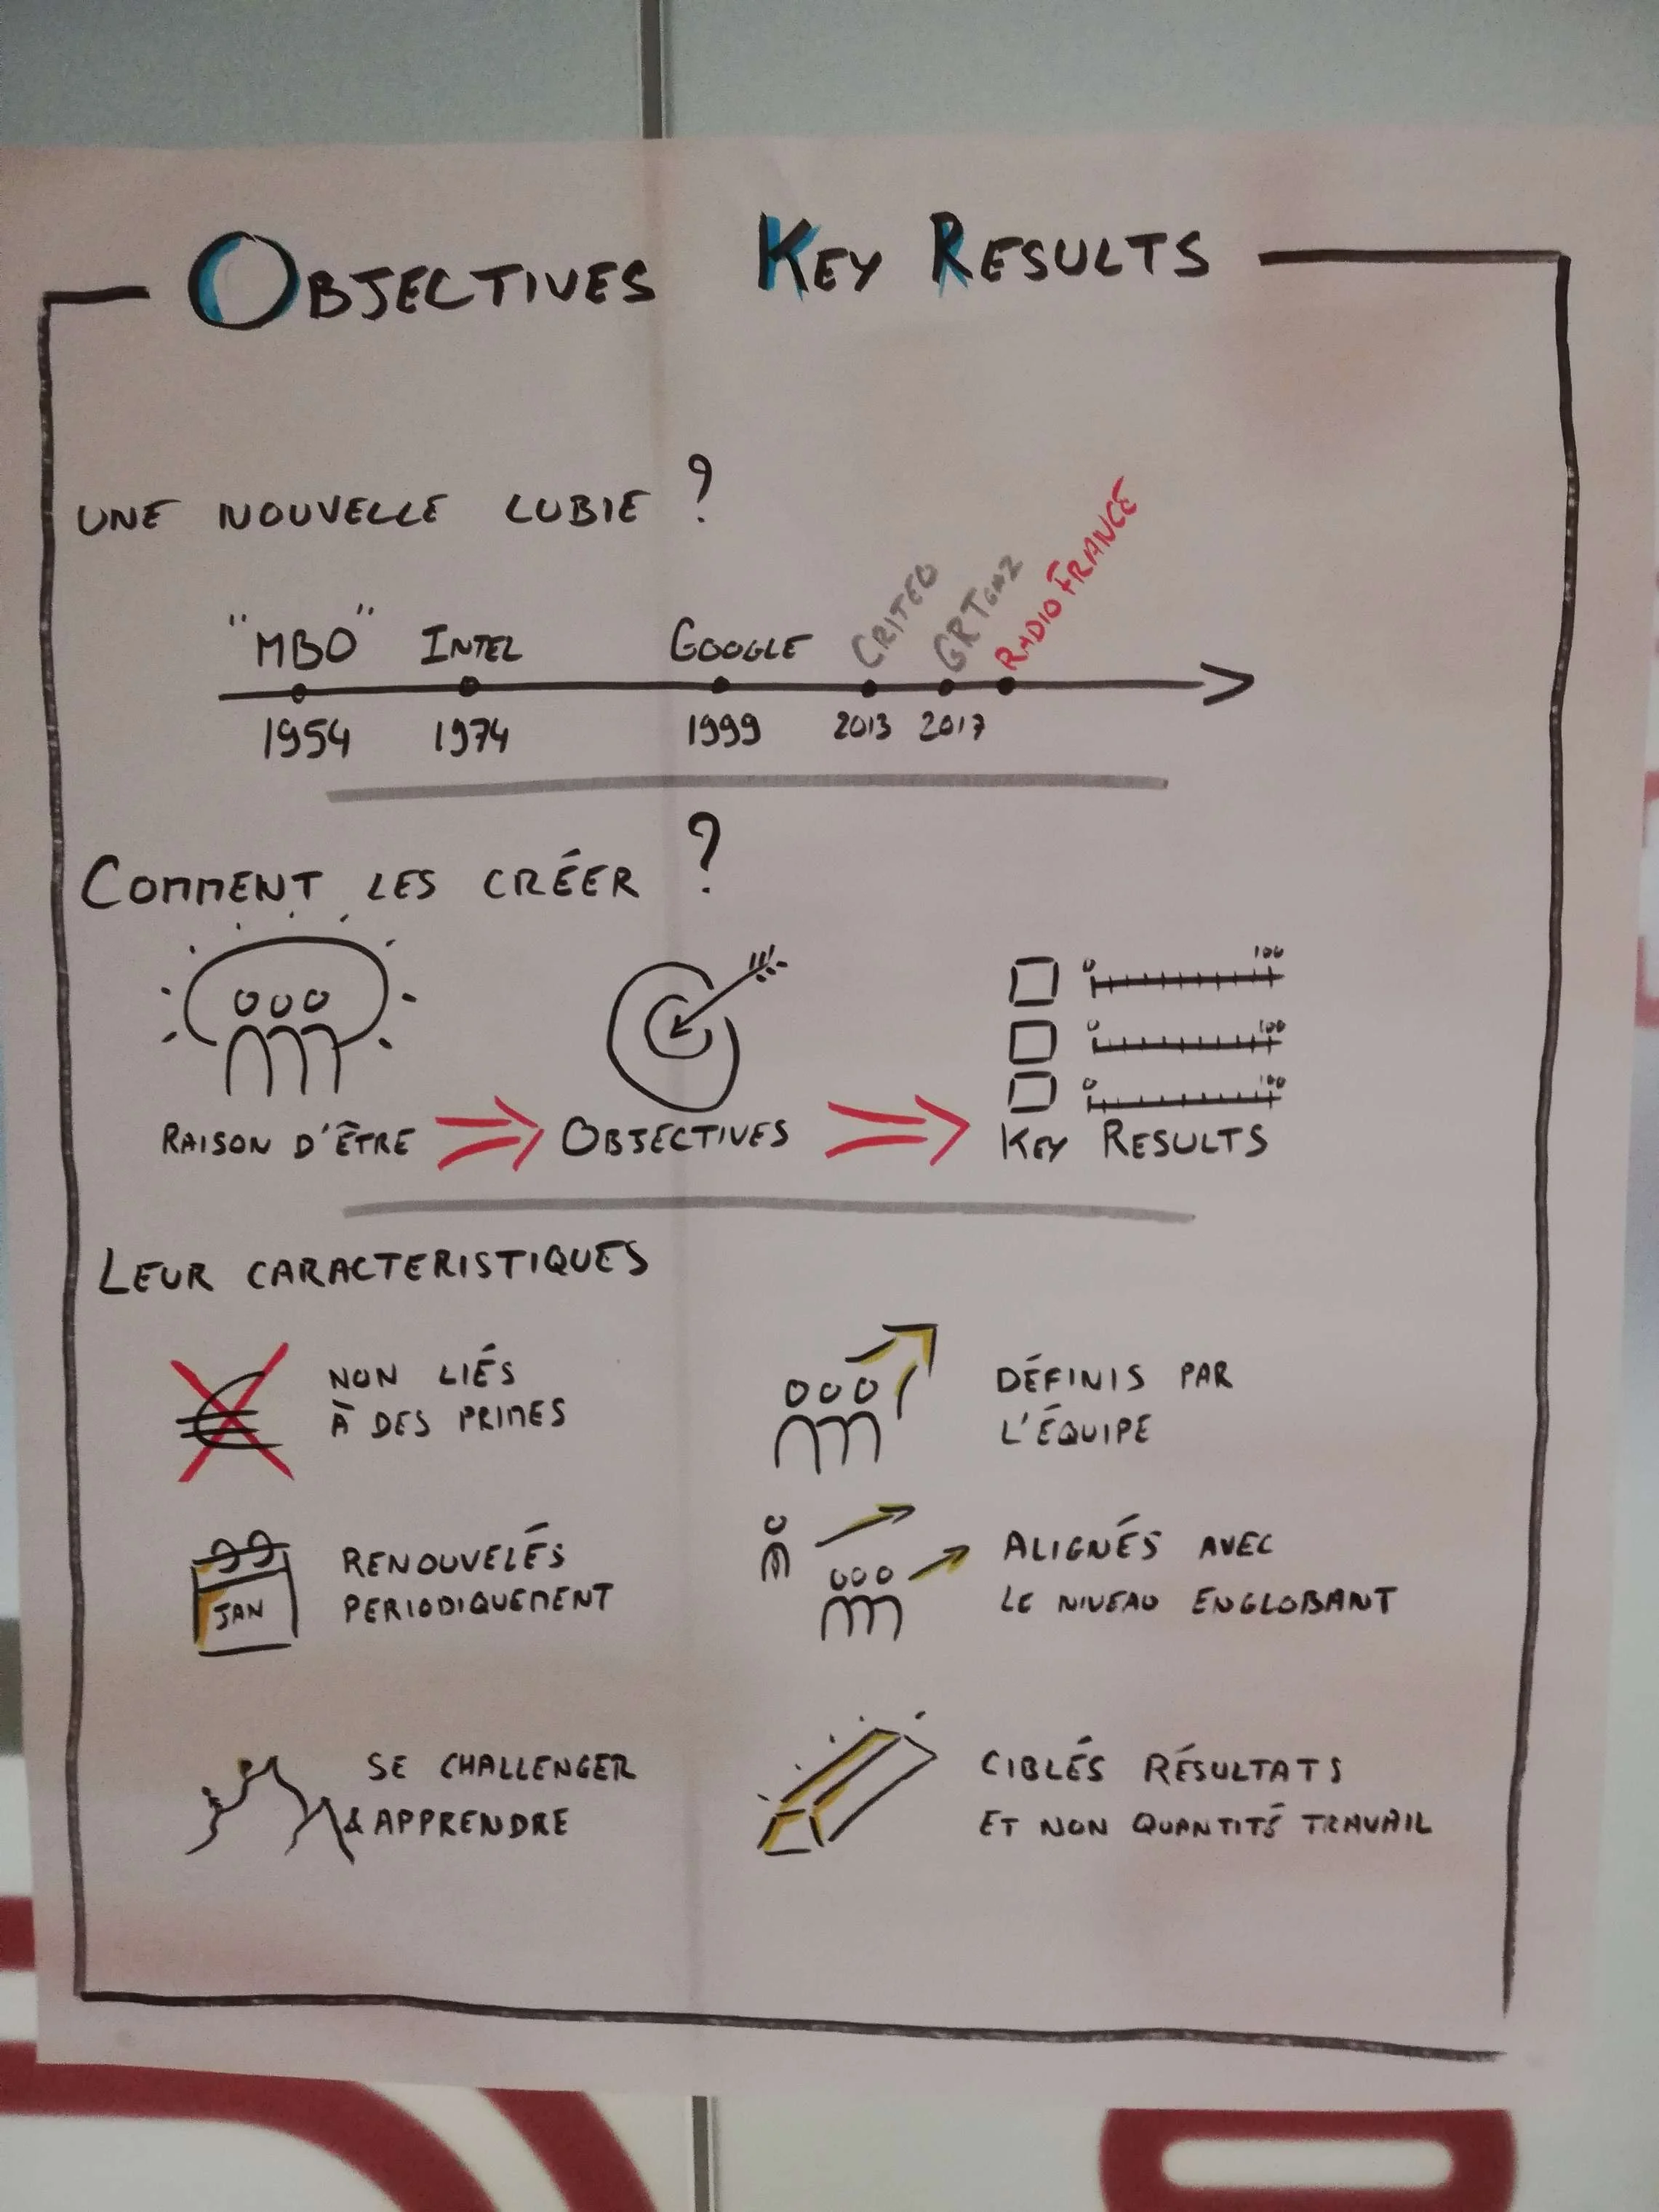 OBJECTIVES KEY RESULTS
UNE NOUVELLE LUBIE ?
"MBO" INTEL GOOGLE CRITEO GRTGAZ RADIO FRANCE
1954 1974 1999 2013 2017
COMMENT LES CRÉER ?
0 100
0 100
0 100
RAISON D'ÊTRE OBJECTIVES KEY RESULTS
LEUR CARACTERISTIQUES
NON LIÉS
À DES PRIMES
DÉFINIS PAR
L'ÉQUIPE
JAN
RENOUVELÉS
PERIODIQUEMENT
ALIGNÉS AVEC
LE NIVEAU ENGLOBANT
SE CHALLENGER
& APPRENDRE
CIBLÉS RÉSULTATS
ET NON QUANTITÉ TRAVAIL